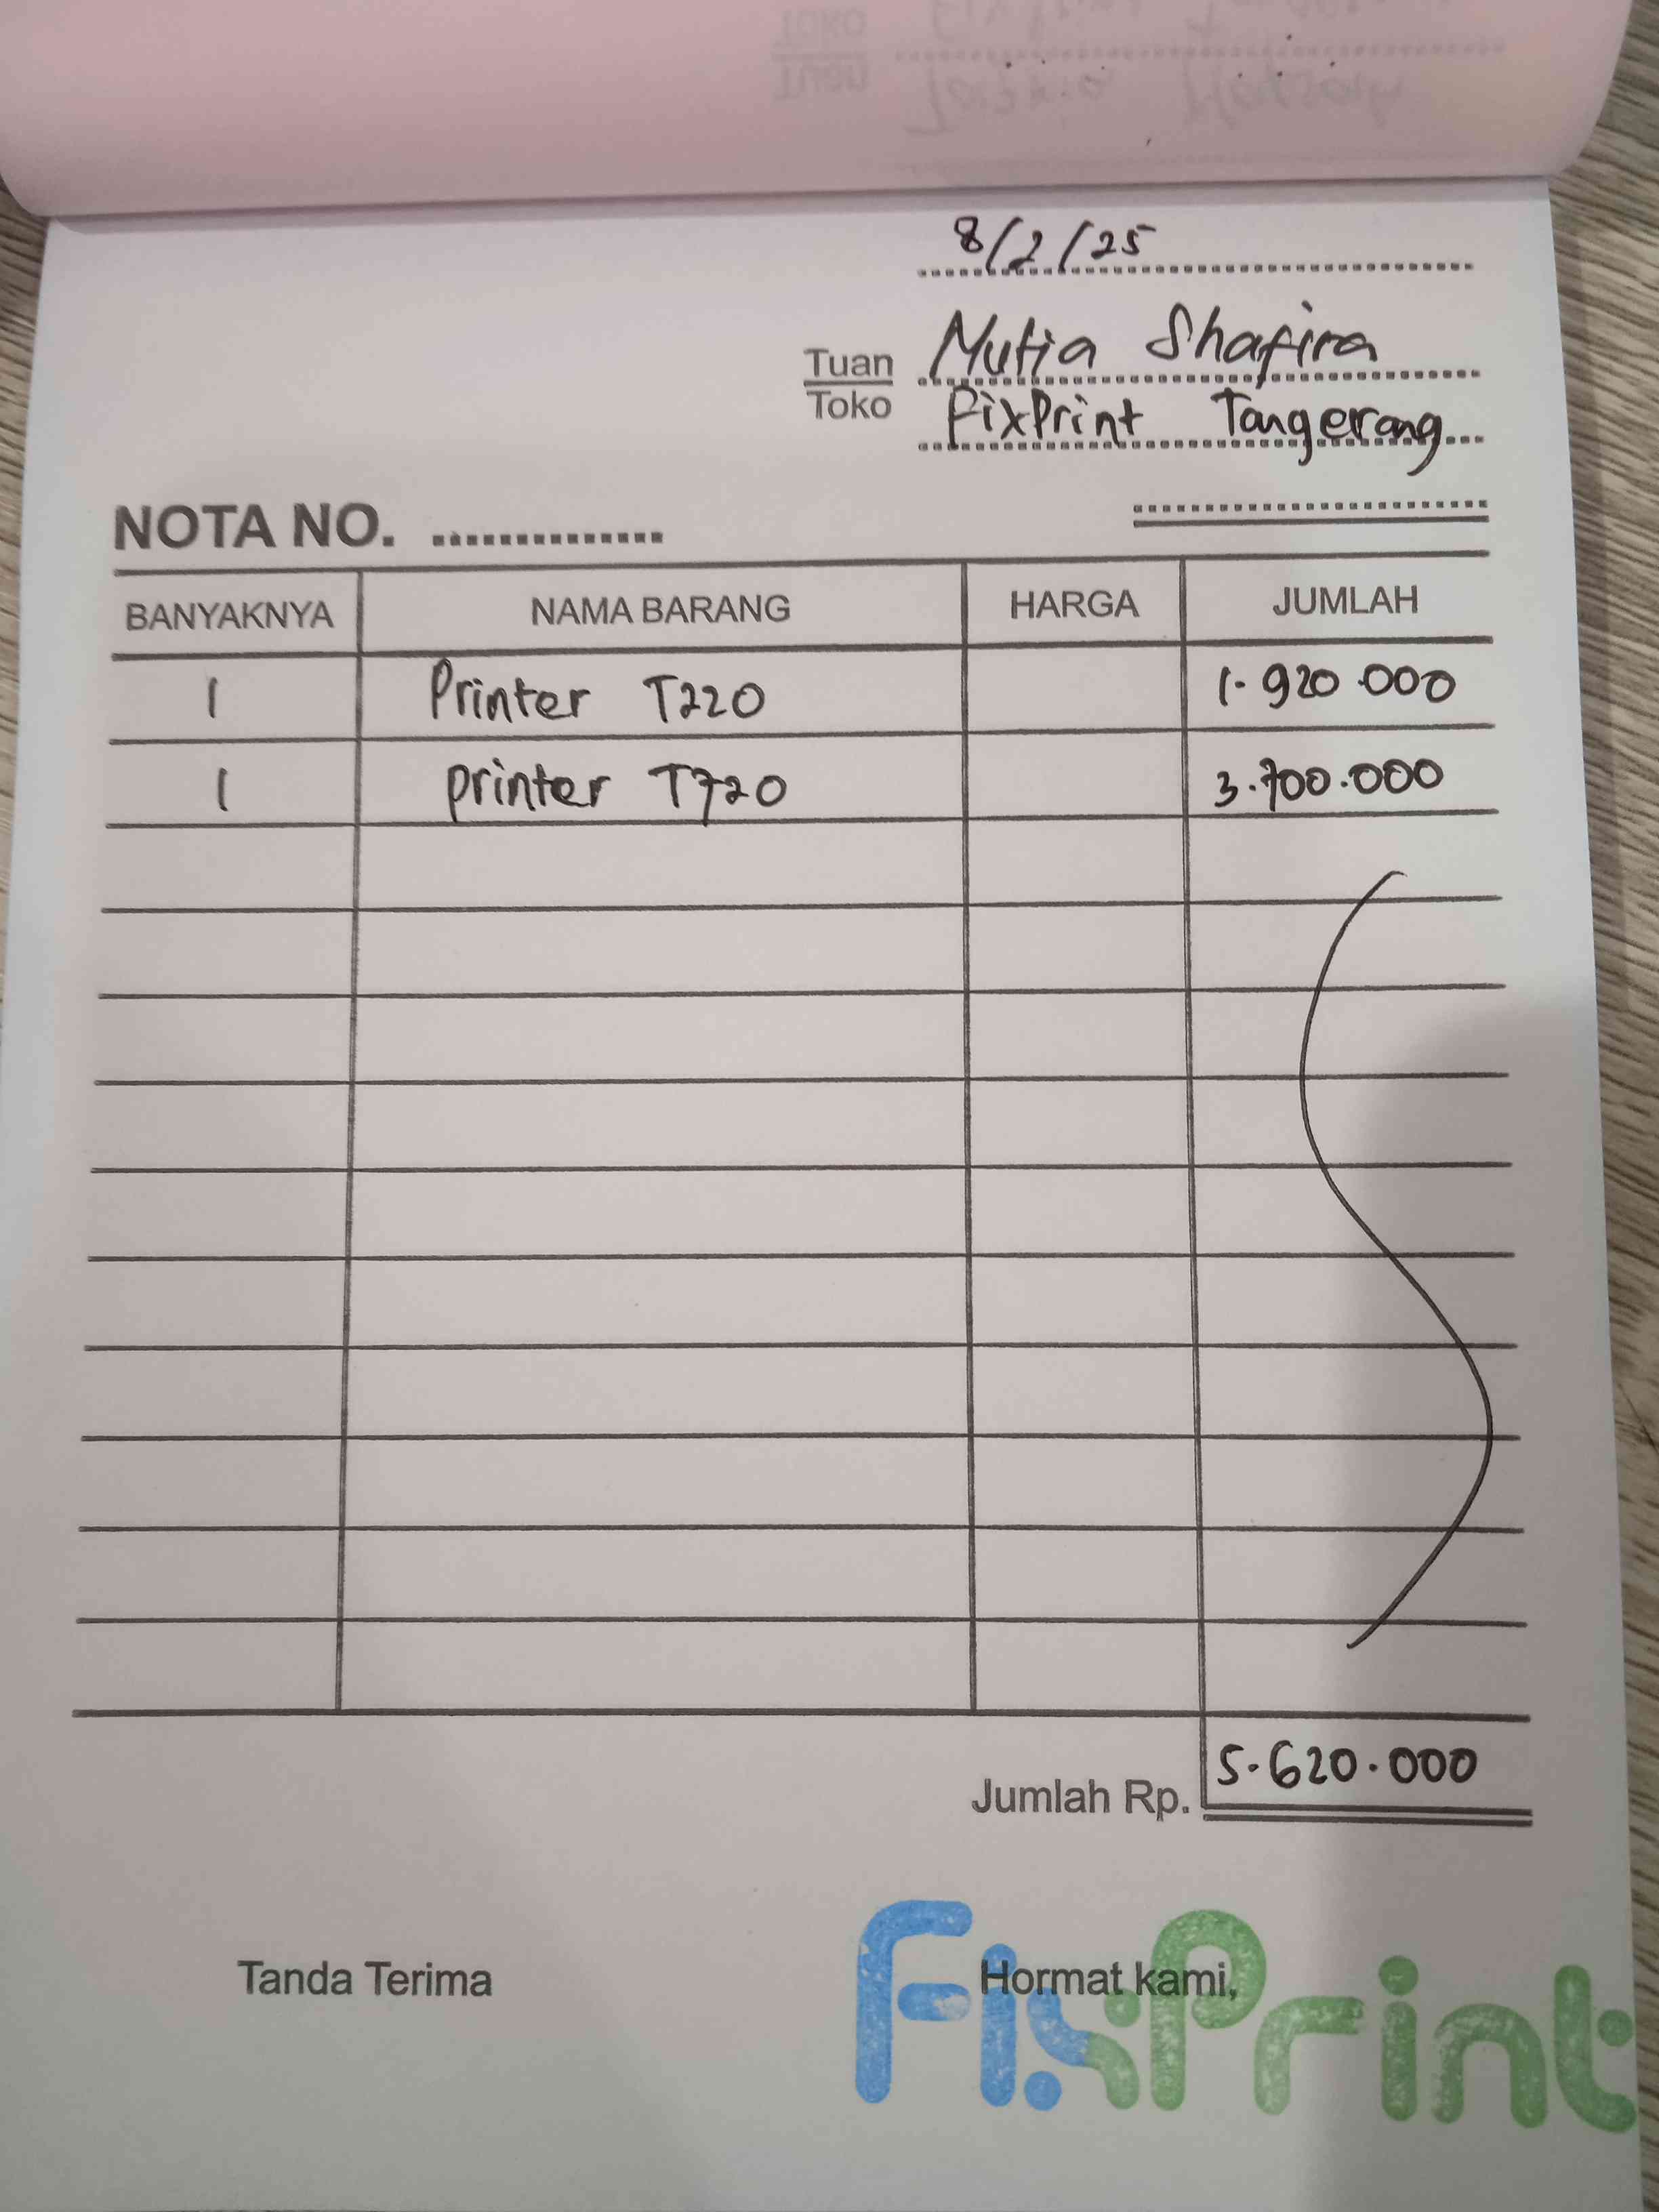 8/2/25
Tuan Mutia Shafira
Toko FixPrint Tangerang
NOTA NO. ..............
BANYAKNYA NAMA BARANG HARGA JUMLAH
1 Printer T220 1.920.000
1 printer T720 3.700.000
Jumlah Rp. 5.620.000
Tanda Terima Hormat kami,
FixPrint